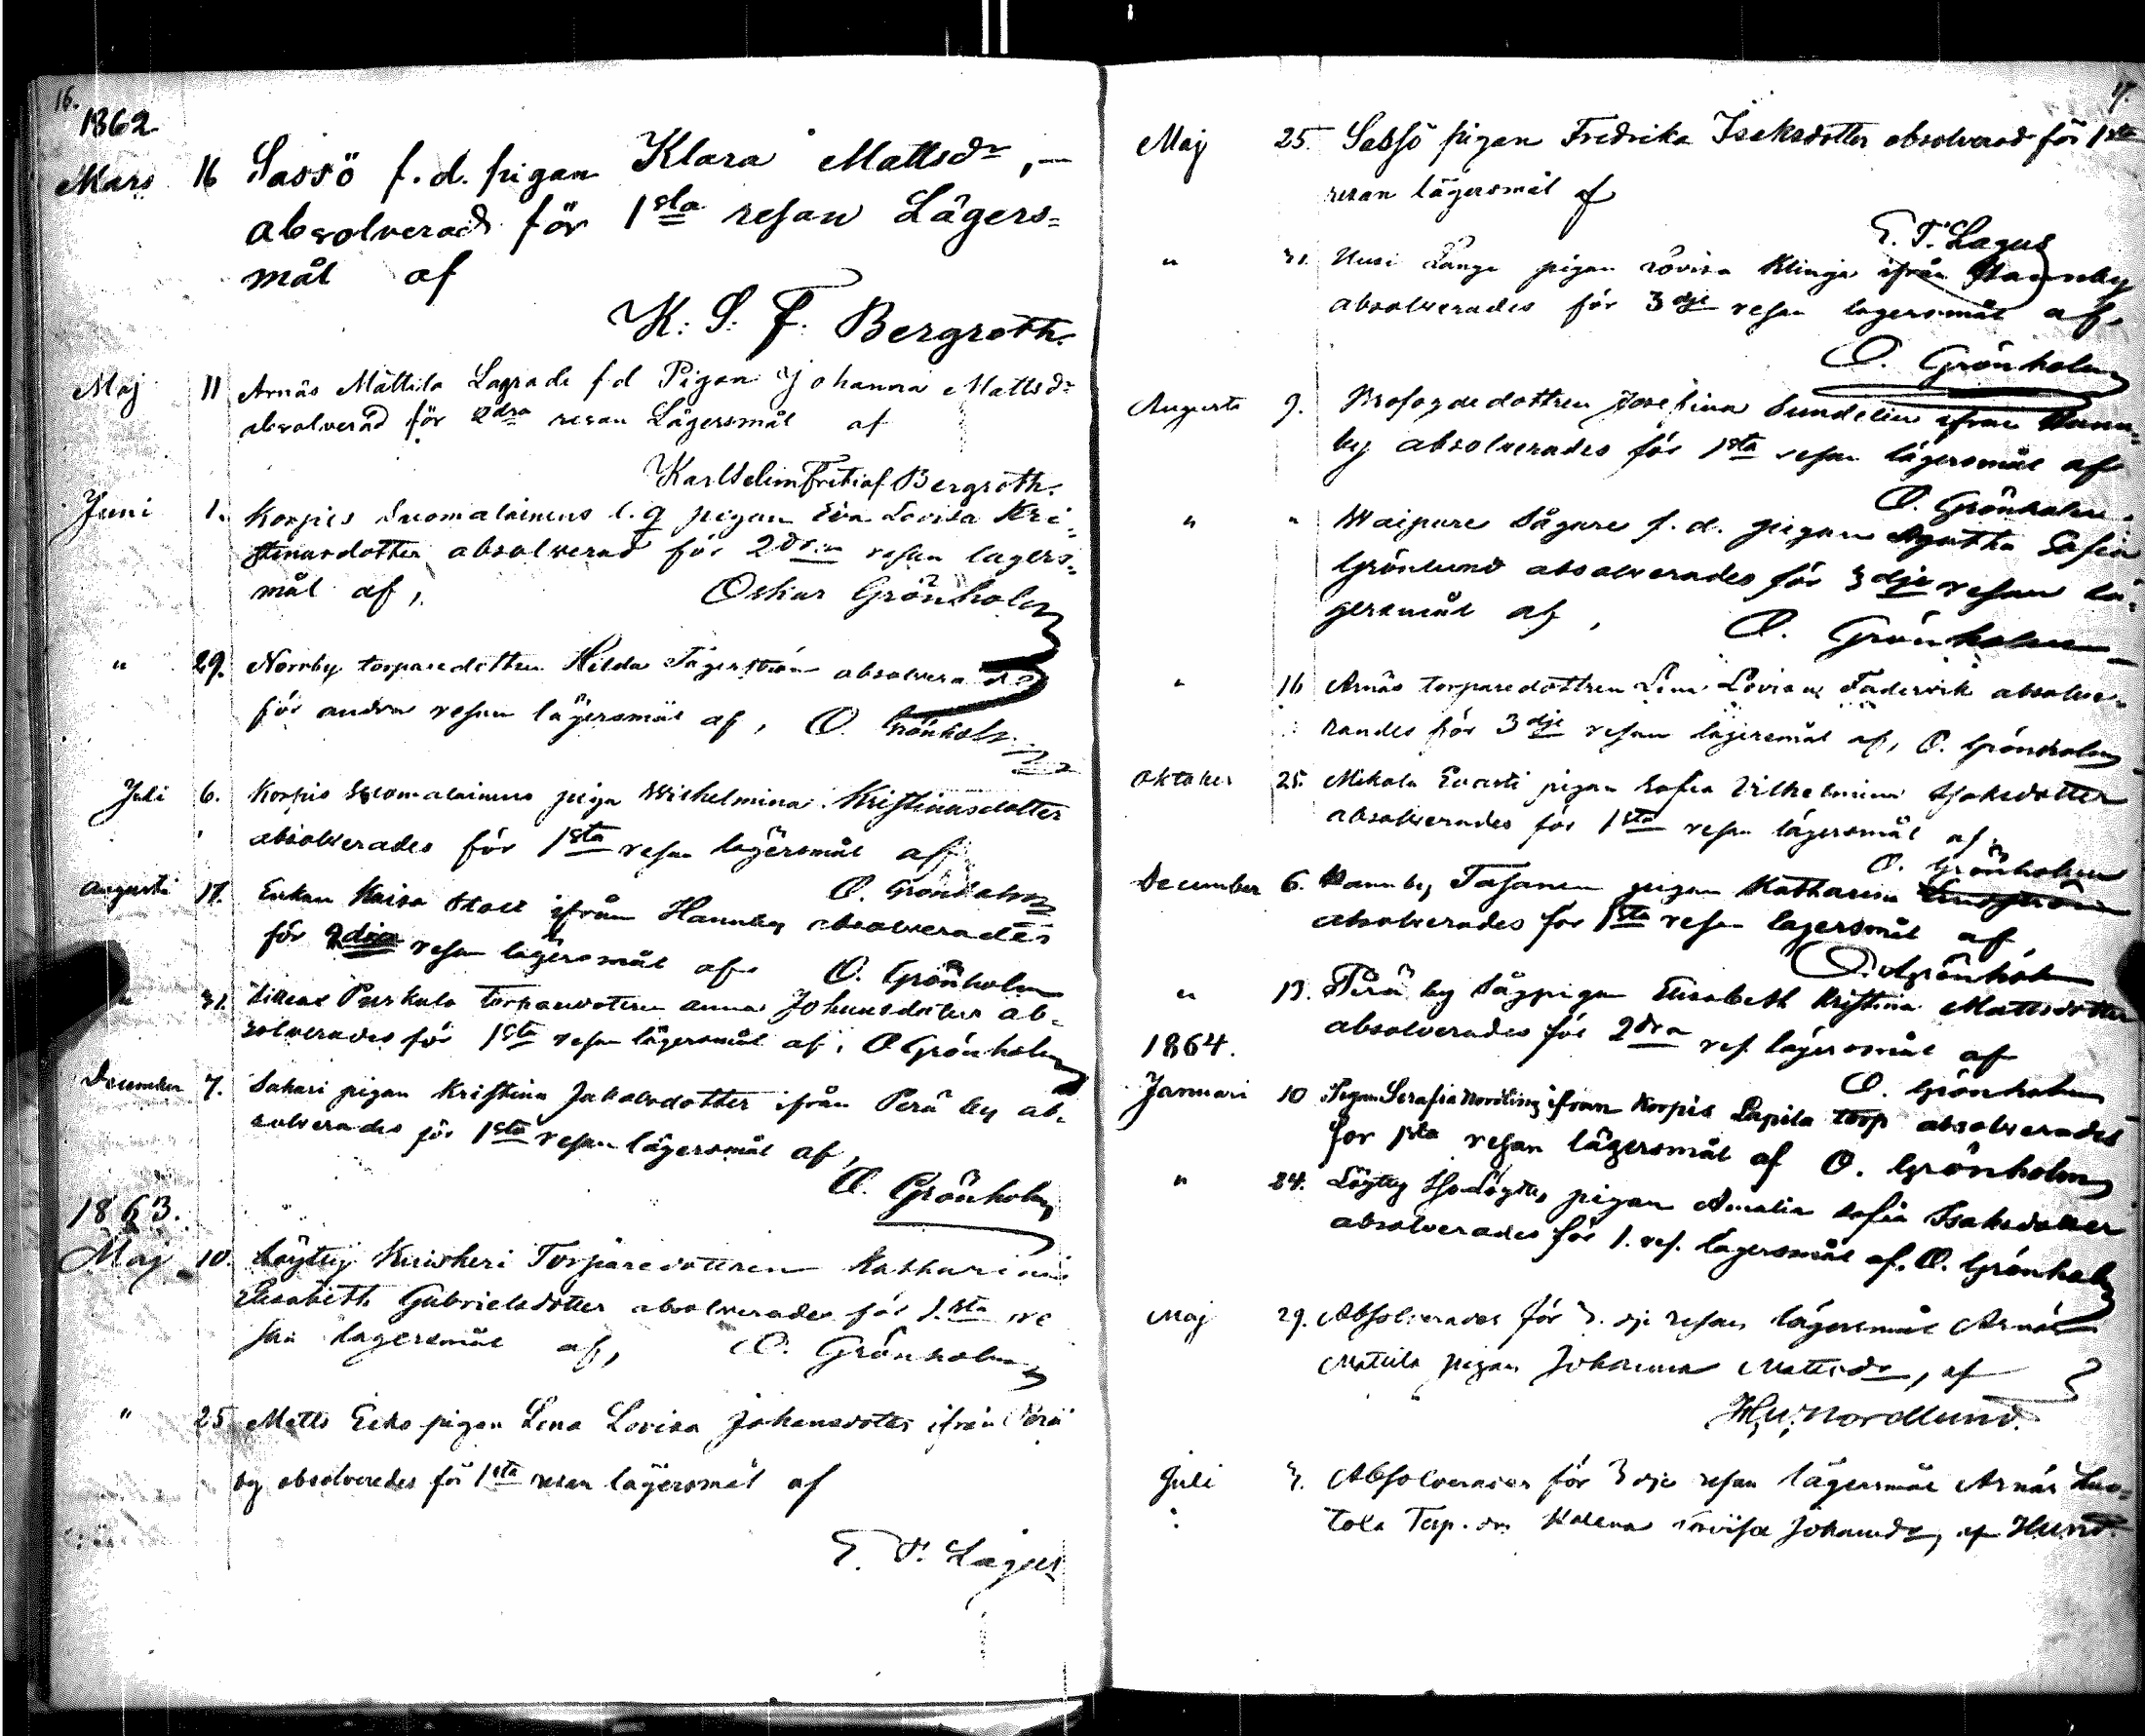 16.
1862
Mars 16 Sassö f. d. pigan Klara Mattsdr, —
absolverad för 1sta resan Lägers=
mål af
K: S: F: Bergroth.
Maj 11 Arnäs Mattila Lagrade f d Pigan Johanna Mattsdr
absolverad för 2dra resan Lägersmål af
Karl Selim Fritiof Bergroth.
Juni 1. Korpis Suomalainens pigan Eva Lovisa Kri=
stinasdotter absolverad för 2dra resan lägers=
mål af, Oskar Grönholm
" 29. Norrby torparedottren Hilda Tägerström absolverades
för andra resan lägersmål af, O. Grönholm
Juli 6. Korpis Suomalainens piga Wilhelmina Kristinasdotter
absolverades för 1sta resan lägersmål af
O. Grönholm
Augusti 17. Enkan Kaisa ifrån Hannby absolverades
för 2dra resan lägersmål af O. Grönholm
" 31. Purkala torparedottren Anna Johansdotter ab=
solverades för 1sta resan lägersmål af, O Grönholm
December 7. Sakari pigan Kristina Jakobsdotter ifrån Perä by ab=
solverades för 1sta resan lägersmål af,
O. Grönholm
1863.
Maj 10. Löytty Torparedottren Katharina
Elisabeth Gabrielsdotter absolverades för 1.sta re
san lägersmål af, O. Grönholm
" 25 Matts Erks pigan Lena Lovisa Johansdotter ifrån Perä
by absolverades för 1sta resan lägersmål af
E. T. Lagus
17.
Maj 25. Sassö pigan Fredrika Isaksdotter absolverad för 1sta
resan lägersmål af
E. T. Lagus
" 31. Uusi Lovisa Klinga ifrån Hannby
absolverades för 3dje resan lägersmål af,
O. Grönholm
Augusti 9. dottren Josefina Sundelin ifrån Hann=
by absolverades för 1sta resan lägersmål af
O. Grönholm.
" " Waipare Sågare f. d. pigan Agatha Sofia
Grönlund absolverades för 3dje resan lä=
gersmål af, O. Grönholm
" 16 Arnäs torparedottren Lena Lovisa absolve=
rades för 3dje resan lägersmål af, O. Grönholm
Oktober 25. Mikola pigan Sofia Vilhelmina Isaksdotter
absolverades för 1sta resan lägersmål af,
O. Grönholm
December 6. Hannby Tasanen pigan Katharina
absolverades för 1sta resan lägersmål af,
O. Grönholm
" 13. Perä by Sågpigan Elisabeth Kristina Mattsdotter
absolverades för 2dra res. lägersmål af
O. Grönholm
1864.
Januari 10 Pigan Serafia Nordling ifrån Korpis Lapila torp absolverades
för 1sta resan lägersmål af O. Grönholm
" 24. Löytty Iso Löyttys pigan Amalia Sofia Isaksdotter
absolverades för 1. res. lägersmål af. O. Grönholm
Maj 29. Absolverades för 3.dje resan lägersmål Arnäs
Mattila pigan Johanna Mattsdr, af
Nordlund.
Juli 3. Absolverades för 3dje resan lägersmål Arnäs
tola Torp. dr Helena Lovisa Johansdr, af